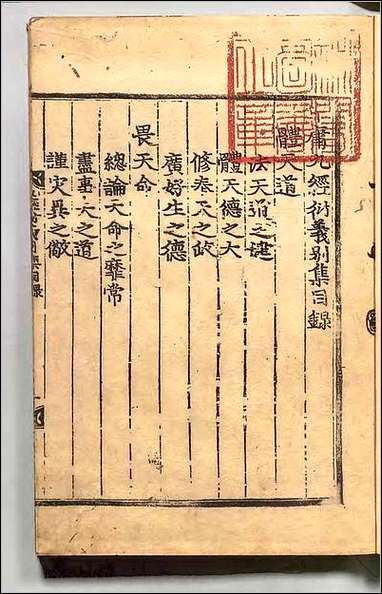 庸九經衍義別集目錄
體天道
法天道之健
體天德之大
修奉天之政
廣好生之德
畏天命
總論天命之靡常
盡事天之道
謹災異之儆